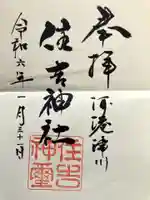 奉拝
阿滝津川
住吉神社
住吉
神璽
令和六年一月三十一日